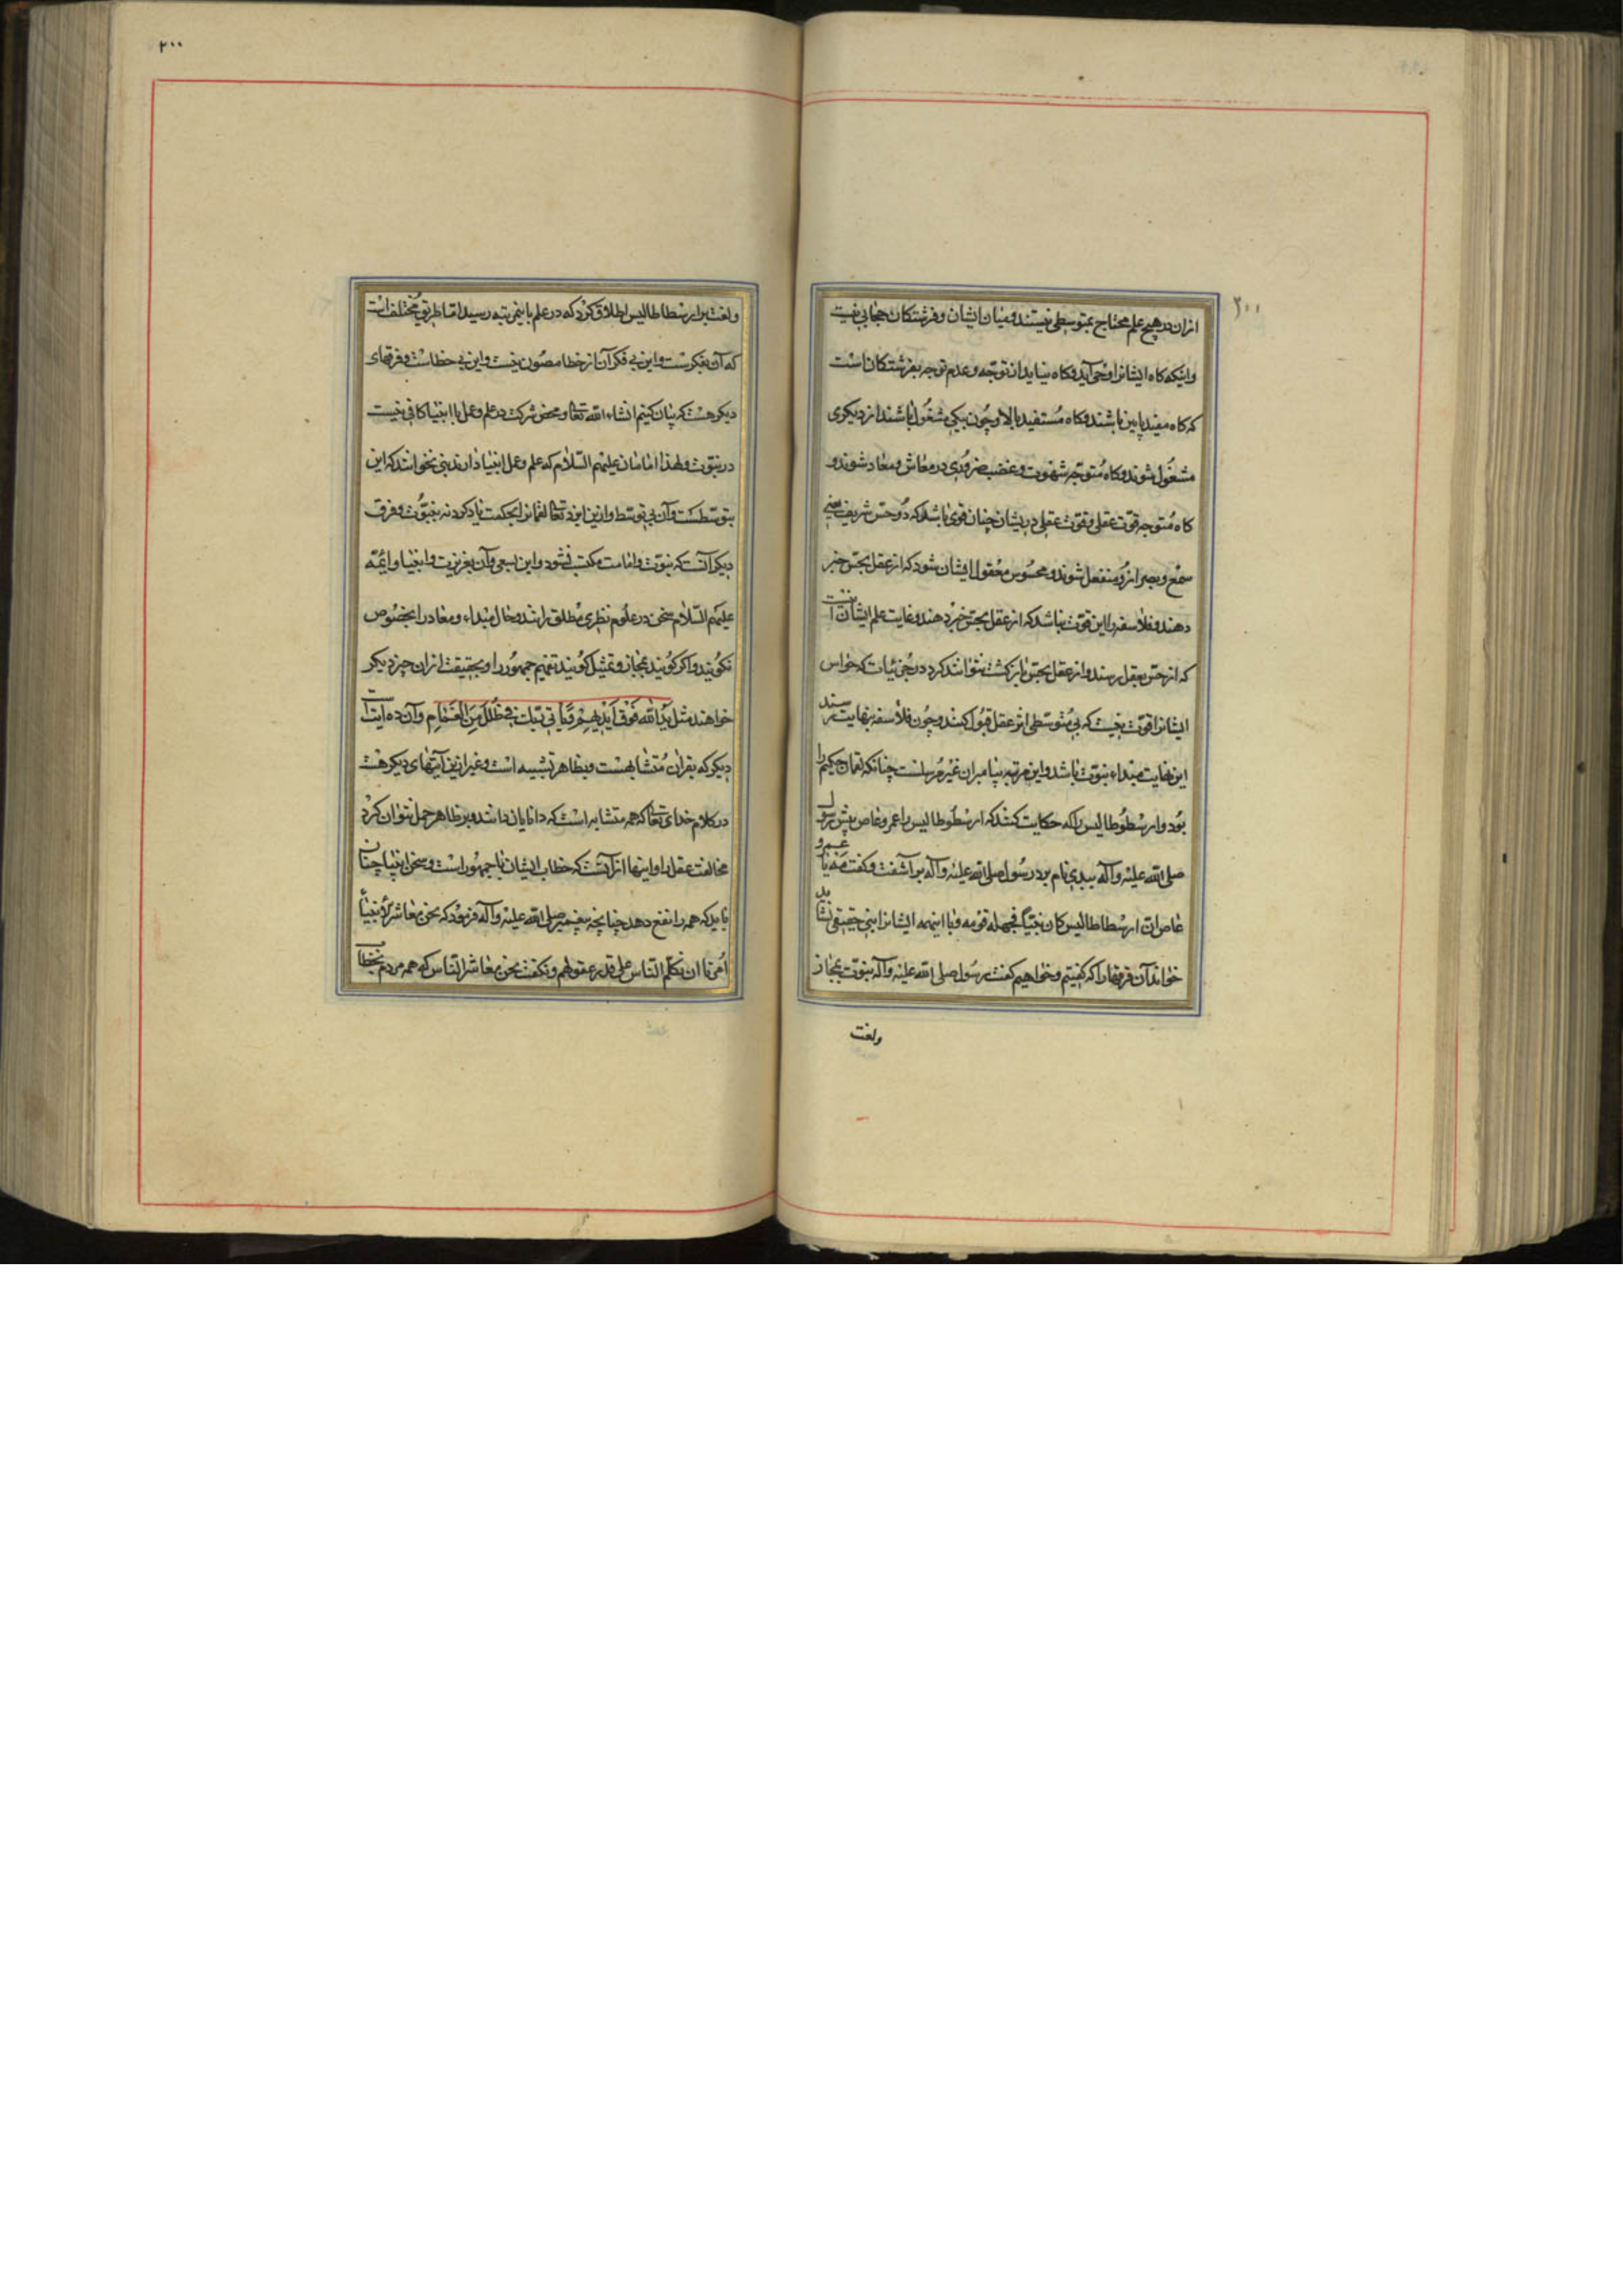 ۲۰۰
ازان در هیچ علم محتاج بمتوسطی نیستند و میان ایشان و فرشتکان حجابی نیست
و اینکه کاه ایشانرا وحی آید و کاه نیاید از توجه و عدم توجه بفرشتکان است
که کاه مفید پایین باشند و کاه مستفید بالا و چون بیکی مشغول باشند از دیکری
مشغول شوند و کاه متوجه شهوت و غضب ضروری در معاش و معاد شوند و
کاه متوجه قوت عقلی و قوت عقلی در یشان چنان قوی باشد که دو حس شریف یعنی
سمع و بصر ازو منفعل شوند و محسوس معقول ایشان شود که از عقل بحس خبر
دهند و فلاسفه را این قوت نباشد که از عقل بحس خبر دهند و غایت علم ایشان آنست
که از حس بعقل رسند و از عقل بحس باز کشت نتوانند کرد در جزئیات که حواس
ایشانرا قوت نیست که بی متوسطی از عقل قبول کنند و چون فلاسفه بنهایت رسند
این نهایت مبداء نبوت باشد و این مرتبه پیامبران غیر مرسلست چنانکه لقمان حکیم را
بود و ارسطوطالیس را که حکایت کنند که ارسطوطالیس را عمرو عاص پیش رسول
صلی الله علیه و آله ببدی نام برد رسول صلی الله علیه و آله بر آشفت و کفت مه یا عمرو
عاص ان ارسطاطالیس کان نبیا فجهله قومه و با اینهمه ایشانرا نبی حقیقی نشاید
خواند آن فرقها را که کفتیم و خواهیم کفت رسول صلی الله علیه و آله نبوت بمجاز
ولغت
۲۰۰
ولغت بر ارسطاطالیس اطلاق کرد که در علم باینمرتبه رسید اما طریق مختلف است
که آن بفکرست و این بی فکر آن از خطا مصون نیست و این بی خطاست و فرقهای
دیکر هست که بیان کنیم انشاء الله تعالی و محض شرکت در علم و عمل با انبیا کافی نیست
در نبوت و لهذا امامان علیهم السلام که علم و عمل انبیا دارند نبی نخوانند که این
بتوسطست و آن بی توسط و ازین ایزد تعالی لقمانرا بحکمت یاد کرد نه بنبوت و فرق
دیکر آنست که نبوت و امامت مکتب نشود و این بسعی و آن بغریزیت و انبیا و ائمه
علیهم السلام سخن در علوم نظری مطلق رانند و حال مبداء و معاد را بخصوص
نکویند و اکر کویند بمجاز و تمثیل کویند تفهیم جمهور را و بحقیقت ازان چیز دیکر
خواهند مثل یدالله فوق ایدیهم و یأتی ربک فی ظلل من الغمام و آن ده آیتست
دیکر که بقران متشابهست و بظاهر تشبیه است و غیر ازین آیتهای دیکر هست
در کلام خدای تعالی که همه متشابه است که دانایان دانند و بر ظاهر حمل نتوان کرد
مخالفت عقل را و اینها از آنست که خطاب ایشان با جمهور است و سخن انبیا چنان
باید که همه را نفع دهد چنانچه پیغمبر صلی الله علیه و آله فرمود که نحن معاشر الانبیاء
امرنا ان نکلم الناس علی قدر عقولهم و نکفت نحن معاشر الناس که همه مردم بخطا